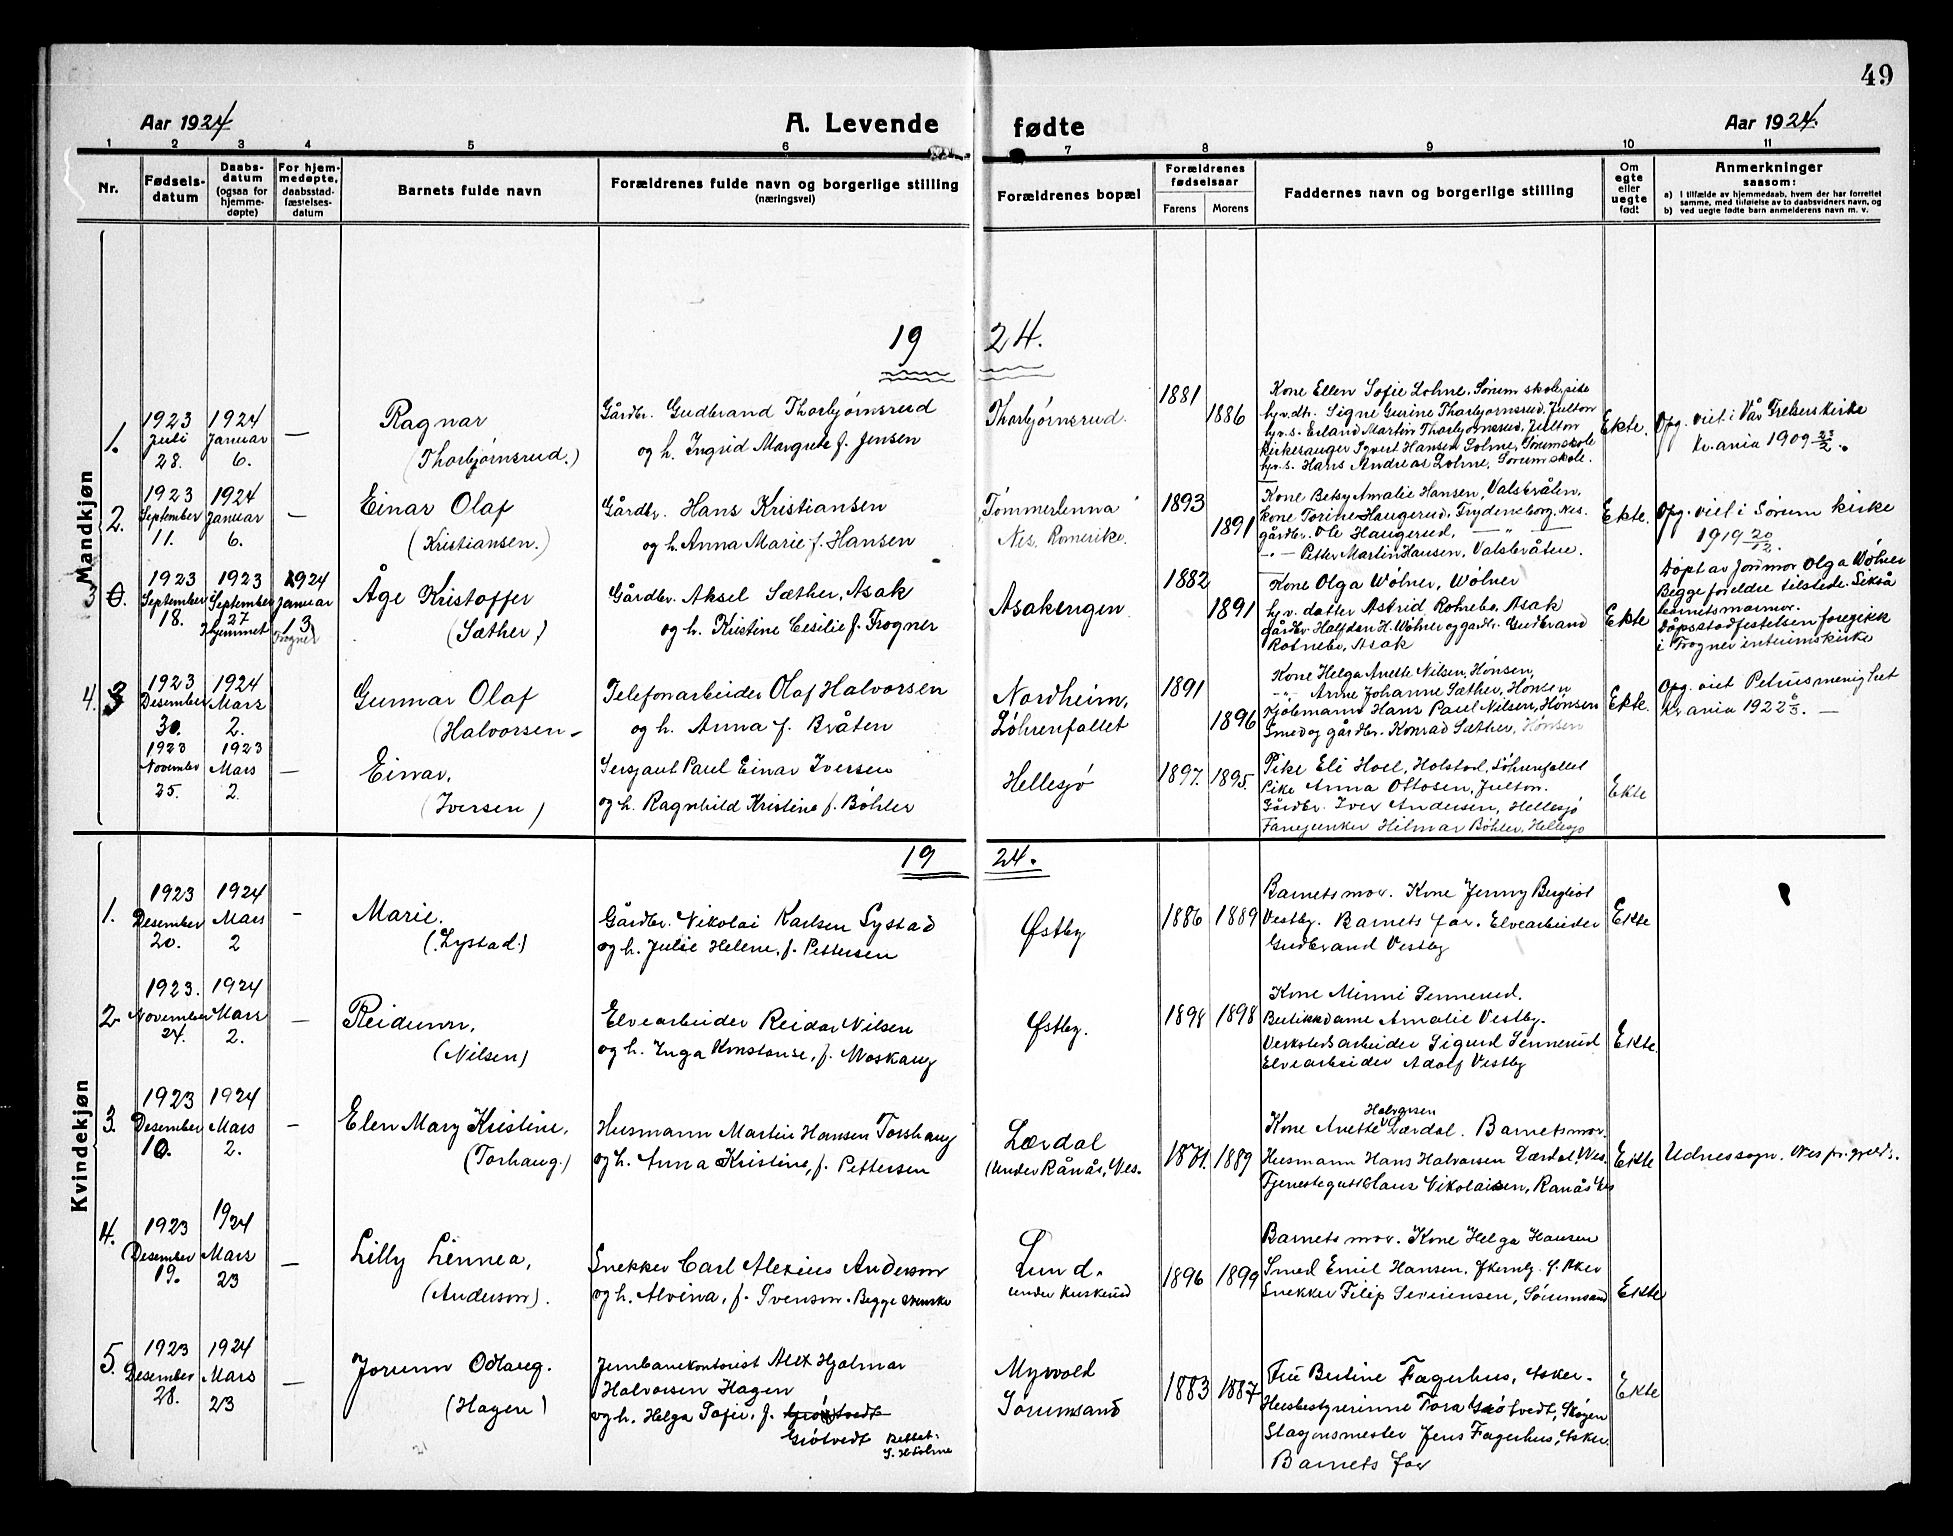 49
Aar 1924
A. Levende fødte
Aar 1924.
1 2 3 4 5 6 7 8 9 10 11
Nr.
Fødselsdatum
Daabsdatum (ogsaa for hjemmedøpte)
For hjemmedøpte, daabsstadfæstelsesdatum
Barnets fulde navn
Forældrenes fulde navn og borgerlige stilling
(næringsvei)
Forældrenes bopæl
Forældrenes fødselsaar
Farens Morens
Faddernes navn og borgerlige stilling
Om egte eller uegte født
Anmerkninger
saasom:
a) I tilfælde av hjemmedaab, hvem der har forrettet samme, med tilføielse av to daabsvidners navn, og
b) ved uegte fødte barn anmelderens navn m. v.
Mandkjøn
19 24.
1.
1923 Juli 28.
1924 Januar 6.
—
Ragnar
(Thorbjørnsrud.)
Gårdbr. Gudbrand Thorbjørnsrud
og h. Ingrid Margrete f. Jensen
Thorbjørnsrud.
1881
1886
Kone Ellen Sofie Lohne, Sørum skole
hjv. dtr. Signe Gurine Thorbjørnsrud, Julton
hjv. s. Erland Martin Thorbjørnsrud, Julton
Kirkesanger Syvert Hansen Lohne, Sørum skole
hjv. s. Hans Andreas Lohne, Sørum skole.
Ekte.
Opg. viet i Vår Frelsers kirke
Kr.ania 1909 23/2.
2.
1923 September 11.
1924 Januar 6.
—
Einar Olaf
(Kristiansen.)
Gårdbr. Hans Kristiansen
og h. Anna Marie f. Hansen
Tømmerlenna
Nes, Romerike.
1893
1891
Kone Betsy Amalie Hansen, Valsbråten,
Kone Torine Haugerud, Frydensborg, Nes.
gårdbr. Ole Haugerud, — " —
— " — Petter Martin Hansen, Valsbråten.
Ekte.
Opg. viet i Sørum kirke
1919 20/12.
3 0.
1923 September 18.
1923 September 27 Hjemmet
1924 Januar 3 Frogner
Åge Kristoffer
(Sæther)
Gårdbr. Aksel Sæther, Asak
og h. Kristine Cesilie f. Frogner
Asakengen
1882
1891
Kone Olga Wölner, Wölner
hjv. datter Astrid Rohnebo, Asak
gårdbr. Halfdan H. Wölner og gårdbr. Gudbrand
Rohnebo, Asak
Ekte
Døpt av jormor Olga Wölner
Begge foreldre tilstede. Likså
barnets mormor.
Dåpsstadfestelsen foregikk
i Frogner interimskirke
4. 3
1923 Desember 30.
1924 Mars 2.
Gunnar Olaf
(Halvorsen —
Telefonarbeider Olaf Halvorsen
og h. Anna f. Bråten
Nordheim,
Løhrenfallet
1891
1896
Kone Helga Anette Nilsen, Hønsen,
— " — Anne Johanne Sæther, Hønsen
Kjøbmann Hans Paul Nilsen, Hønsen
Smed og gårdbr. Konrad Sæther, Hønsen
Ekte.
Opg. viet Petrus menighet
Kr.ania 1922 5/3. —
1923 November 25.
1923 Mars 2.
—
Einar,
(Iversen)
Sersjant Paul Einar Iversen
og h. Ragnhild Kristine f. Böhler
Hellesjø
1897. 1895.
Pike Eli Hoel, Holstad, Løhrenfallet
Pike Anna Ottosen, Julton.
Gårdbr. Iver Andersen, Hellesjø
Fanejunker Hilmar Böhler, Hellesjø
Ekte
Kvindekjøn
19 24.
1.
1923 Desember 20.
1924 Mars 2
-
Marie.
(Lystad.)
Gårdbr. Nikolai Karlsen Lystad
og h. Julie Helene, f. Pettersen
Østby
1886 1889
Barnets mor. Kone Jenny Bergliot
Vestby. Barnets far. Elvearbeider
Gudbrand Vestby
Ekte
2
1923. November 24.
1924 Mars 2.
—
Reidunn,
(Nilsen)
Elvearbeider Reidar Nilsen
og h. Inga Konstanse, f. Moskaug
Østby.
1898 1898
Kone Minni Sennerud.
Butikkdame Amalie Vestby.
Verkstedsarbeider Sigurd Sennerud
Elvearbeider Adolf Vestby
Ekte.
3.
1923 Desember 10.
1924 Mars 2.
—
Elen Mary Kristine,
(Torhaug.)
Husmann Martin Hansen Torshaug
og h. Anna Kristine, f. Pettersen
Lærdal
(under Rånås, Nes.
1871. 1889
Kone Anette Halvorsen Lærdal. Barnets mor.
Husmann Hans Halvorsen Lærdal, Nes.
Tjenestegutt Claus Nikolaisen, Ranås Nes
Ekte
Udnes sogn, Nes pr.gjeld.
4.
1923 Desember 19.
1924 Mars 23
—
Lilly Linnea,
(Anderson).
Snekker Carl Alexius Anderson
og h. Alvina, f. Svenson. Begge svenske
Lund.
under Kuskerud
1896 1899
Barnets mor. Kone Helga Hansen
Smed Emil Hansen,
Snekker Filip Severinsen, Sørumsand
Ekte
5.
1923 Desember 28.
1924 Mars 23
—
Jorunn Odlaug.
(Hagen)
Jernbanekontorist Alex Hjalmar
Halvorsen Hagen
og h. Helga Sofie, f. Grötvedt
Grötvedt Rettet.
S. H. Lohne
Myrvold
Sørumsand
1883 1887
Fru Bertine Fagerhus, Asker.
Husbestyrerinne Tora Grötvedt, Skøyen
Stasjonsmester Jens Fagerhus, Asker.
Barnets far
Ekte